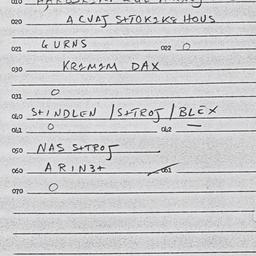 020 A CVAJ S+TOK2KE HOUS
021 GURNS 022 O
030 KR2M2M DAX
031 O
040 S+INDLEN / S+TROJ / BLEX
041 O 042 —
050 NAS S+TROJ
060 ARIN3+ 061
070 O